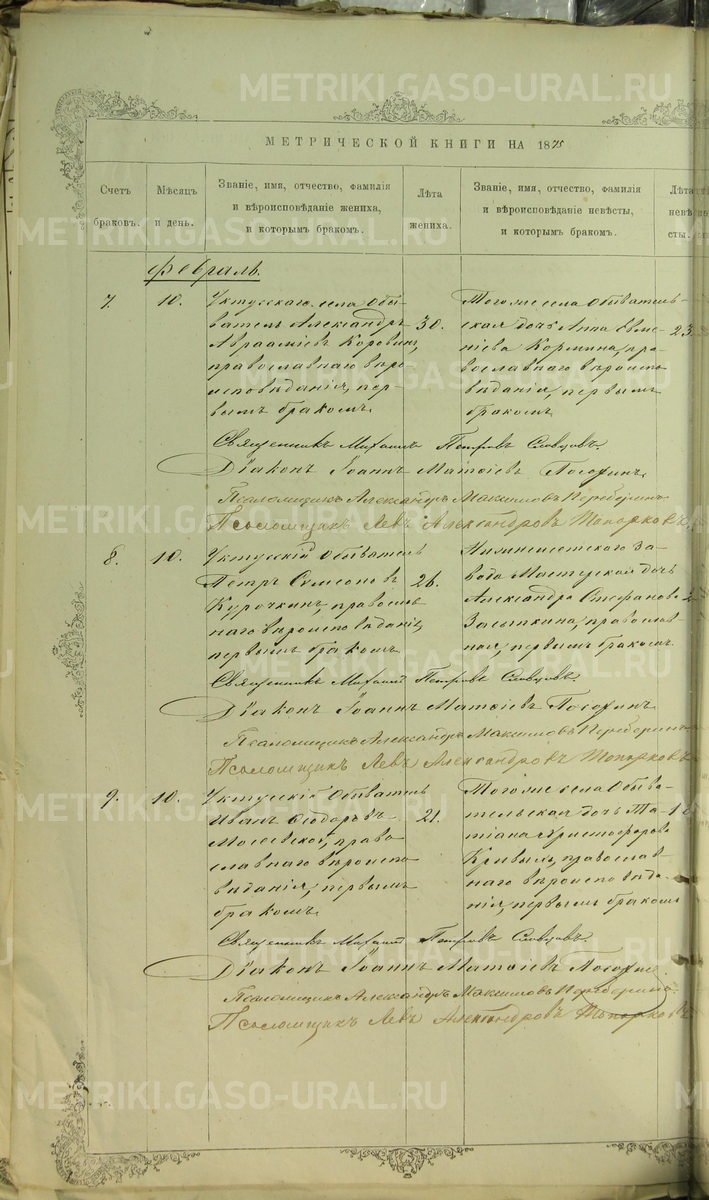 METRIKI.GASO-URAL.RU
МЕТРИЧЕСКОЙ КНИГИ НА 1875
Счетъ браковъ.
Мѣсяцъ и день.
Званіе, имя, отчество, фамилія
и вѣроисповѣданіе жениха,
и которымъ бракомъ.
Лѣта жениха.
Званіе, имя, отчество, фамилія
и вѣроисповѣданіе невѣсты,
и которымъ бракомъ.
Лѣта
невѣ
сты.
Февраль.
7.
10.
Уктусскаго села Обы-
ватель Александръ
Авраамiевъ Коровинъ,
православнаго вѣро
исповѣданія, пер-
вымъ бракомъ.
30.
Тогоже села Обыватель-
ская дочь Анна Евме-
ніева Кормина, пра-
вославнаго вѣроиспо
вѣданія, первымъ
бракомъ
23
Священникъ Михаилъ Петровъ Словцовъ.
Діаконъ Іоаннъ Матѳіевъ
Псаломщикъ Александръ Максимовъ Переберинъ
Псаломщикъ Левъ Александровъ Топорковъ
8.
10.
Уктусскій Обыватель
Петръ Сумеоновъ
Курочкинъ, православ
наго вѣроисповѣданія,
первымъ бракомъ
26.
Нижнеисетскаго за-
вода Мастерская дочь
Александра Стефанова
Засыпкина, православ
ная, первымъ бракомъ.
2
Священникъ Михаилъ Петровъ Словцовъ.
Діаконъ Іоаннъ Матѳіевъ
Псаломщикъ Александръ Максимовъ Переберинъ
Псаломщикъ Левъ Александровъ Топорковъ
9.
10.
Уктусскій Обыватель
Иванъ Ѳеодоровъ
православнаго вѣроиспо
вѣданія, первымъ
бракомъ.
21.
Тогоже села Обыва-
тельская дочь Та-
тіана Христофорова
Кривыхъ, православ-
наго вѣроисповѣда-
нія, первымъ бракомъ
18
Священникъ Михаилъ Петровъ Словцовъ.
Діаконъ Іоаннъ Матѳіевъ
Псаломщикъ Александръ Максимовъ Переберинъ
Псаломщикъ Левъ Александровъ Топорковъ